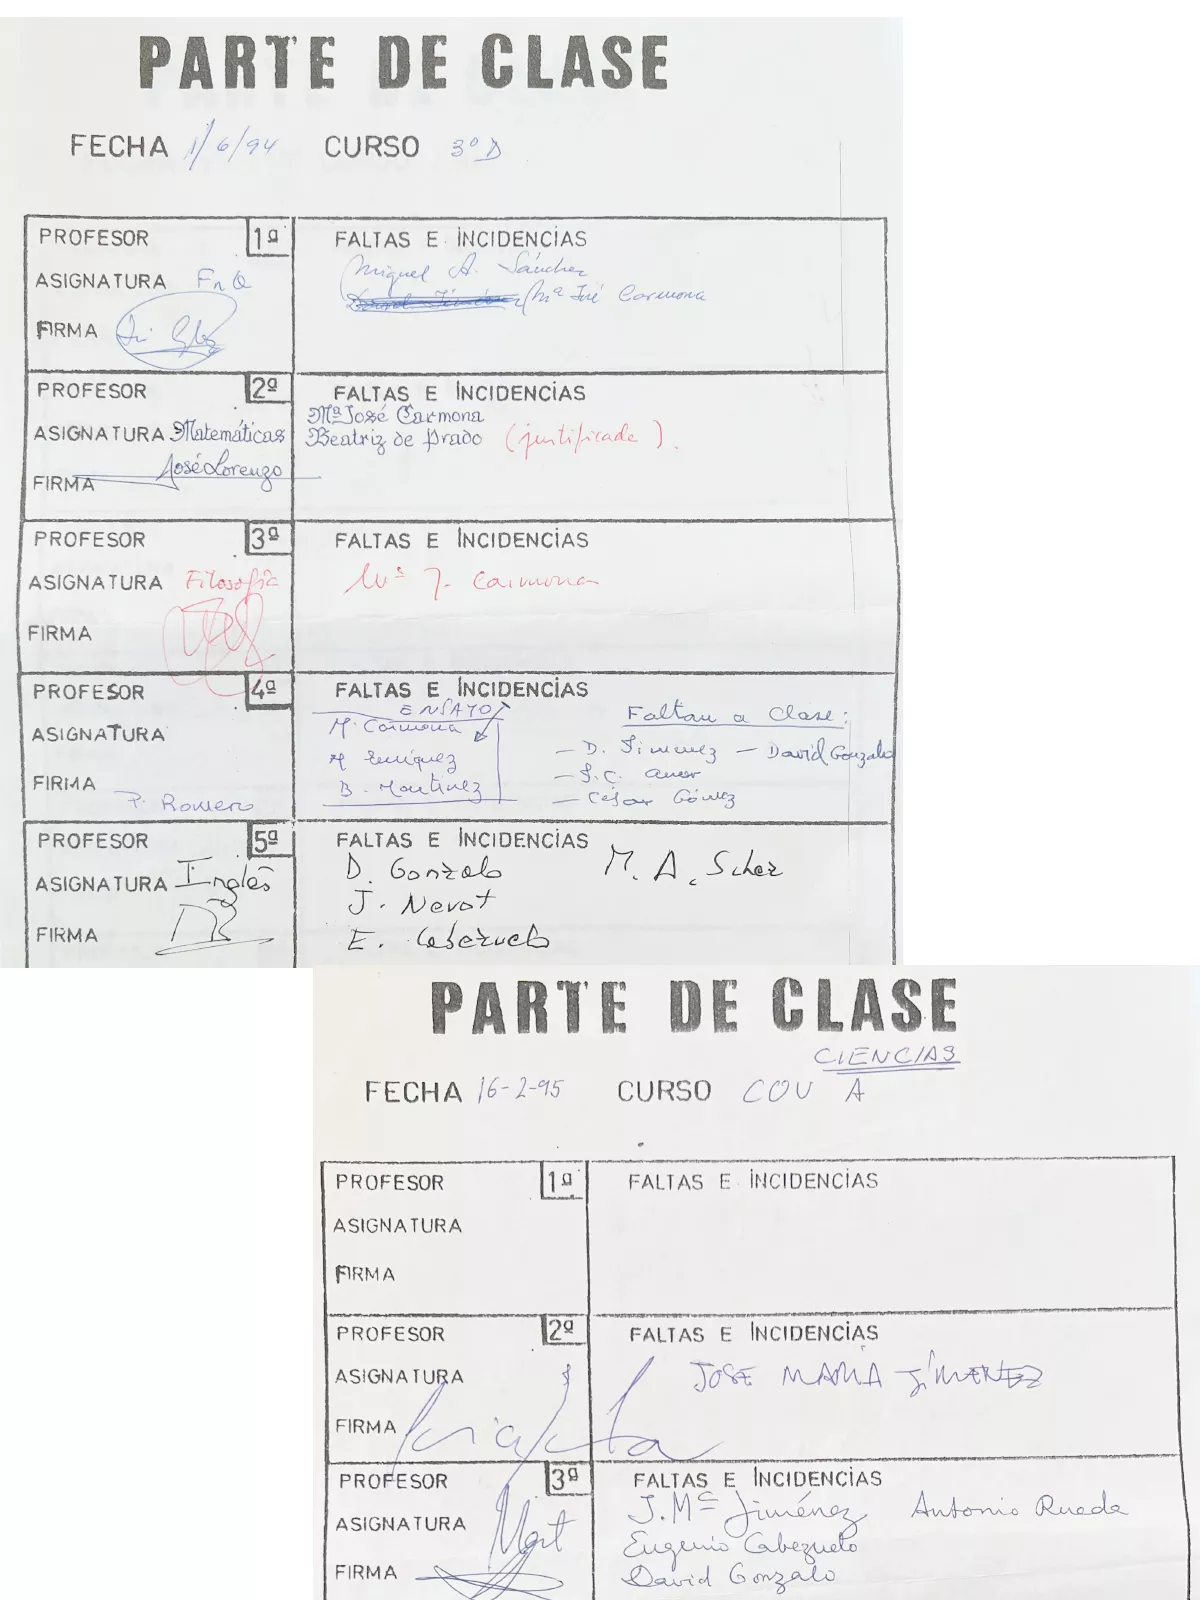 PARTE DE CLASE
FECHA 1/6/94 CURSO 3º D
PROFESOR 1ª FALTAS E INCIDENCIAS
Miguel A. Sánchez
ASIGNATURA FnQ
Mª José Carmona
FIRMA
PROFESOR 2ª FALTAS E INCIDENCIAS
Mª José Carmona
ASIGNATURA Matemáticas Beatriz de Prado (justificade).
José Lorenzo
FIRMA
PROFESOR 3ª FALTAS E INCIDENCIAS
ASIGNATURA Filosofía Mª J. Carmona
FIRMA
PROFESOR 4ª FALTAS E INCIDENCIAS
ENSAYO
Mª Carmona Faltan a clase:
ASIGNATURA
M Enríquez — D. Jimenez — David Gonzalo
B. Martinez — J.C. Amor
FIRMA P. Romero — César Gómez
PROFESOR 5ª FALTAS E INCIDENCIAS
D. Gonzalo M. A. Schez
ASIGNATURA Inglés
J. Nevot
FIRMA E. Cabezuelo
PARTE DE CLASE
CIENCIAS
FECHA 16-2-95 CURSO COU A
PROFESOR 1ª FALTAS E INCIDENCIAS
ASIGNATURA
FIRMA
PROFESOR 2ª FALTAS E INCIDENCIAS
ASIGNATURA JOSE MARIA JIMENEZ
FIRMA
PROFESOR 3ª FALTAS E INCIDENCIAS
J. Mª Jiménez Antonio Rueda
ASIGNATURA Mat
Eugenio Cabezuelo
FIRMA David Gonzalo